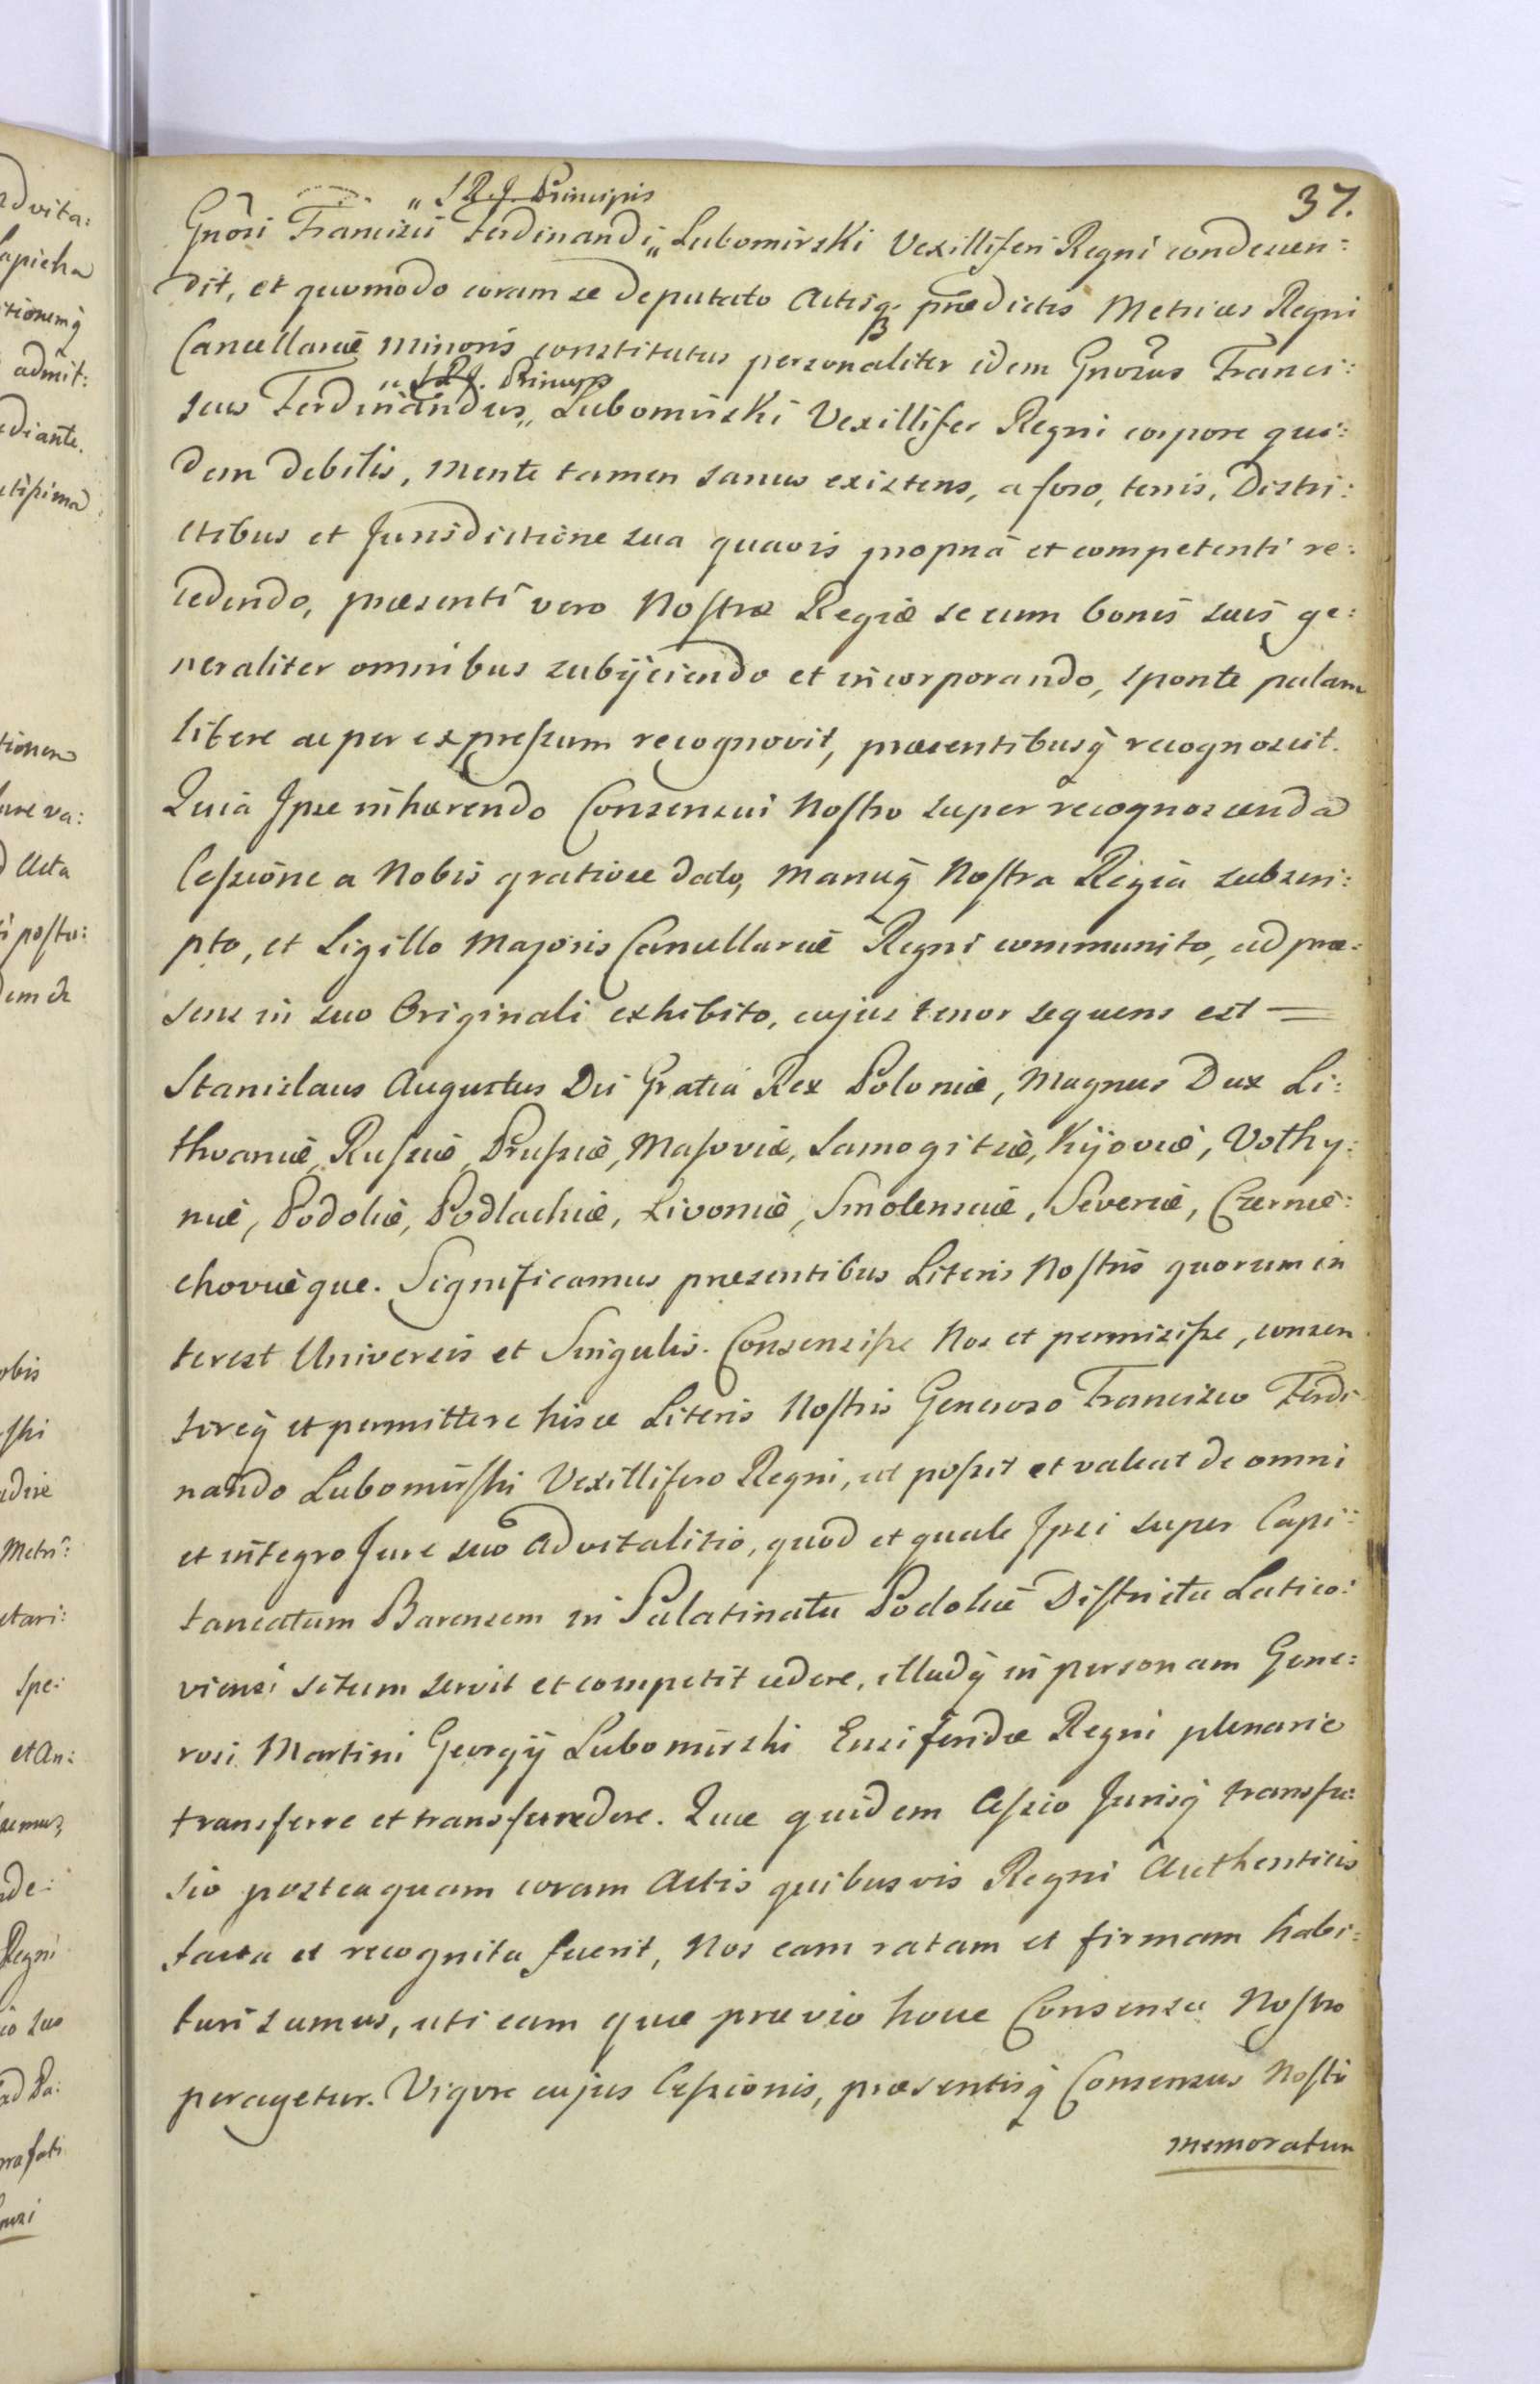 37.
„ S. R. J. Principis
Gnosi Francisci Ferdinandi „ Lubomirski Vexilliferi Regni condescen:
dit, et quomodo coram se Deputato Actisq prædictis Metrices Regni
Cancellariæ Minoris constitutus personaliter idem Gnosus Franci:
„ S. R. J. Princeps
scus Ferdinandus „ Lubomirski Vexillifer Regni corpore qui:
dem debilis, mente tamen sanus existens, a foro, terris, Distri:
ctibus et Jurisdictione sua quavis propriâ et competenti re:
cedendo, præsenti vero Nostræ Regiæ se cum bonis suis ge:
neraliter omnibus subijciendo et incorporando, sponte palam
libere ac per expressum recognovit, præsentibusq recognoscit.
Quia Ipse inhærendo Consensui Nostro super recognoscenda
Cessione a Nobis gratiose dato, manuq Nostra Regia subscri:
pto, et Sigillo Majoris Cancellariæ Regni communito, ad præ:
sens in suo Originali exhibito, cujus tenor sequens est =
Stanislaus Augustus Dei Gratia Rex Poloniæ, Magnus Dux Li:
thvaniæ, Russiæ, Prussiæ, Masoviæ, Samogitiæ, Kijoviæ, Volhy:
niæ, Podoliæ, Podlachiæ, Livoniæ, Smolensciæ, Severiæ, Czernie:
choviæque. Significamus præsentibus Literis Nostris quorum in
terest Universis et Singulis. Consensisse Nos et permisisse, consen
tireq et permittere hisce Literis Nostris Generoso Francisco Ferdi
nando Lubomirski Vexillifero Regni, ut possit et valeat de omni
et integro Jure suo advitalitio, quod et quale Ipsi super Capi:
taneatum Barensem in Palatinatu Podoliæ Districtu Latico:
viensi situm servit et competit cedere, illudq in personam Gene:
rosi Martini Georgij Lubomirski Ensiferidæ Regni plenarie
transferre et transfundere. Quæ quidem Cessio Jurisq transfu:
sio posteaquam coram Actis quibusvis Regni Authenticis
facta et recognita fuerit, Nos eam ratam et firmam habi:
turi sumus, uti eam quæ prævio hocce Consensu Nostro
peragetur. Vigore cujus Cessionis, præsentisq Consensus Nostri
memoratum